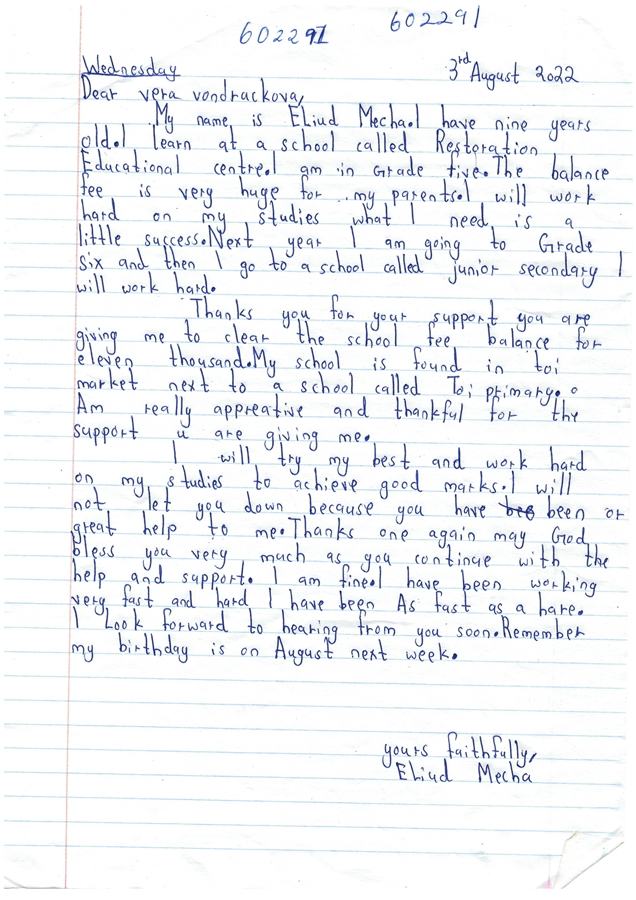 602291
602291
Wednesday
3rd August 2022
Dear vera vondrackova,
My name is Eliud Mecha.I have nine years
old.I learn at a school called Restoration
Educational centre.I am in Grade five.The balance
fee is very huge for my parents.I will work
hard on my studies what I need is a
little success.Next year I am going to Grade
six and then I go to a school called junior secondary I
will work hard.
Thanks you for your support you are
giving me to clear the school fee balance for
eleven thousand.My school is found in toi
market next to a school called Toi primary.
Am really appreative and thankful for the
support u are giving me.
I will try my best and work hard
on my studies to achieve good marks.I will
not let you down because you have been of
great help to me.Thanks one again may God
bless you very much as you continue with the
help and support. I am fine.I have been working
very fast and hard I have been As fast as a hare.
I Look forward to hearing from you soon.Remember
my birthday is on August next week.
yours faithfully,
Eliud Mecha